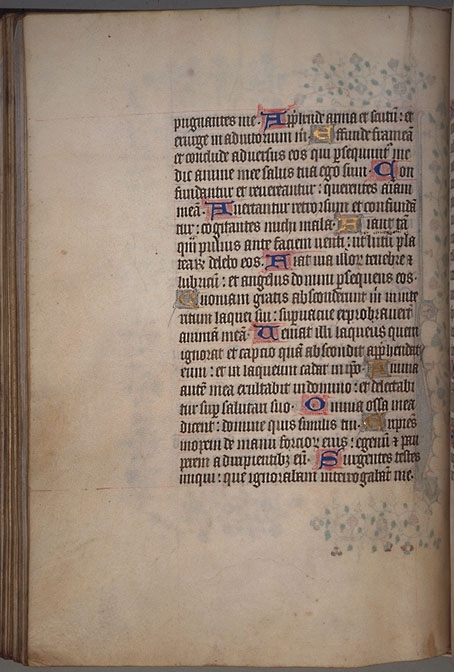 pugnantes me. Apphende arma et scutũ: et
exurge in adiutorium m̃. Effunde frameã
et conclude adversus eos qui psequunt᷑ me
dic anime mee salus tua ego sum. Con
fundantur et revereantur: querentes aĩam
meã. Avertantur retrorsum et confundã
tur: cogitantes michi mala. Fiant tã
q̃ȝ pulvis ante faciem venti: et
deo eos. Fiat via illoꝝ tenebre ⁊
lubricũ: et angelus domini psequens eos.
Quoniam gratis absconderunt m̃ interi
tum laquei sui: supvacue exprobraverũt
animam meã. Veniat illi laqueus quem
ignorat et captio quã abscondit apphendat
eum: et in laqueum cadat in ip̃o. Anima
autẽ mea exultabit in domino: et delectabi
tur sup salutari suo. Omnia ossa mea
dicent: domine quis similis tui. Eripiẽs
inopem de manu fortior eius: egenũ ⁊ pau
perem a diripientibȝ eũ. Surgentes testes
iniqui: que ignorabam interrogabãt me.